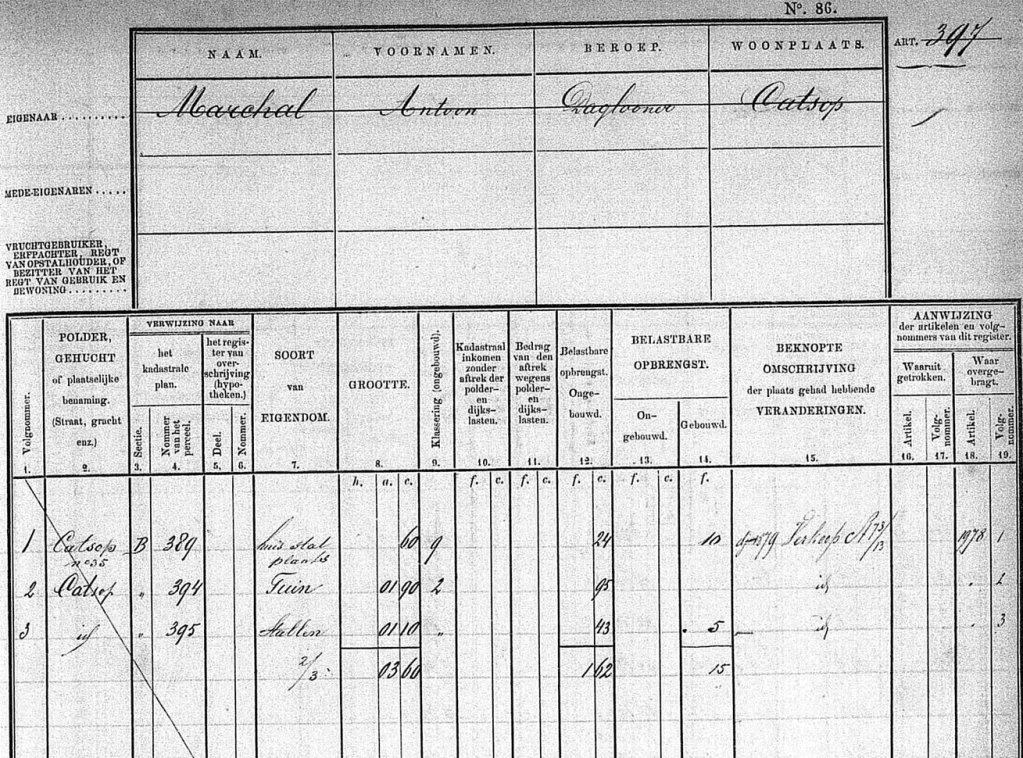 No. 86.
NAAM. VOORNAMEN. BEROEP. WOONPLAATS. ART. 397
EIGENAAR .......... Marchal Antoon Daglooner Catsop
MEDE-EIGENAREN .....
VRUCHTGEBRUIKER,
ERFPACHTER, REGT
VAN OPSTALHOUDER, OF
BEZITTER VAN HET
REGT VAN GEBRUIK EN
BEWONING ..........
Volgnommer.
POLDER,
GEHUCHT
of plaatselijke
benaming.
(Straat, gracht
enz.)
VERWIJZING NAAR
het
kadastrale
plan.
Sectie.
Nommer
van het
perceel.
het regis-
ter van
over-
schrijving
(hypo-
theken.)
Deel.
Nommer.
SOORT
van
EIGENDOM.
GROOTTE.
Klassering (ongebouwd).
Kadastraal
inkomen
zonder
aftrek der
polder-
en
dijks-
lasten.
Bedrag
van den
aftrek
wegens
polder-
en
dijks-
lasten.
Belastbare
opbrengst.
Onge-
bouwd.
BELASTBARE
OPBRENGST.
On-
gebouwd.
Gebouwd.
BEKNOPTE
OMSCHRIJVING
der plaats gehad hebbende
VERANDERINGEN.
AANWIJZING
der artikelen en volg-
nommers van dit register.
Waaruit
getrokken.
Artikel.
Volg-
nommer.
Waar
overge-
bragt.
Artikel.
Volg-
nommer.
1. 2. 3. 4. 5. 6. 7. 8. 9. 10. 11. 12. 13. 14. 15. 16. 17. 18. 19.
h. a. c. f. c. f. c. f. c. f. c. f.
1 Catsop B 389 huis stal 60 9 24 10 1879 Verkoop A 73/13 1978 1
no 35 plaats
2 Catsop " 394 Tuin 01 90 2 95 id "
3 id " 395 Stallen 01 10 " 43 5 id " 3
2/3 03 60 1 62 15